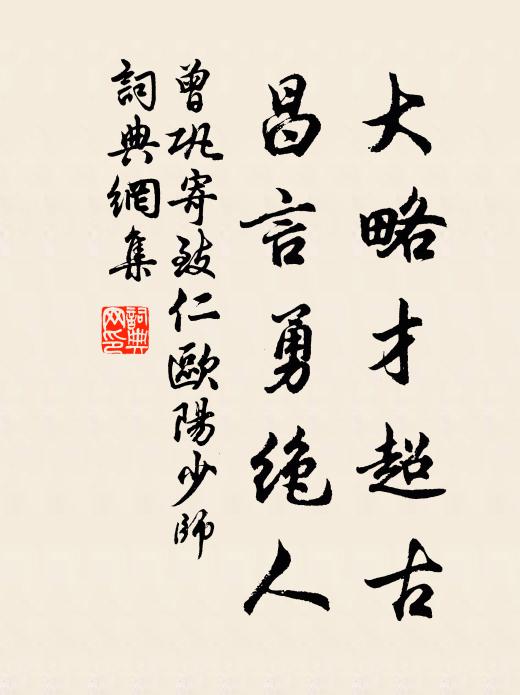 大略才超古
昌言勇絶人
曾巩寄致仁歐陽少師
詞典網集
詞典网印